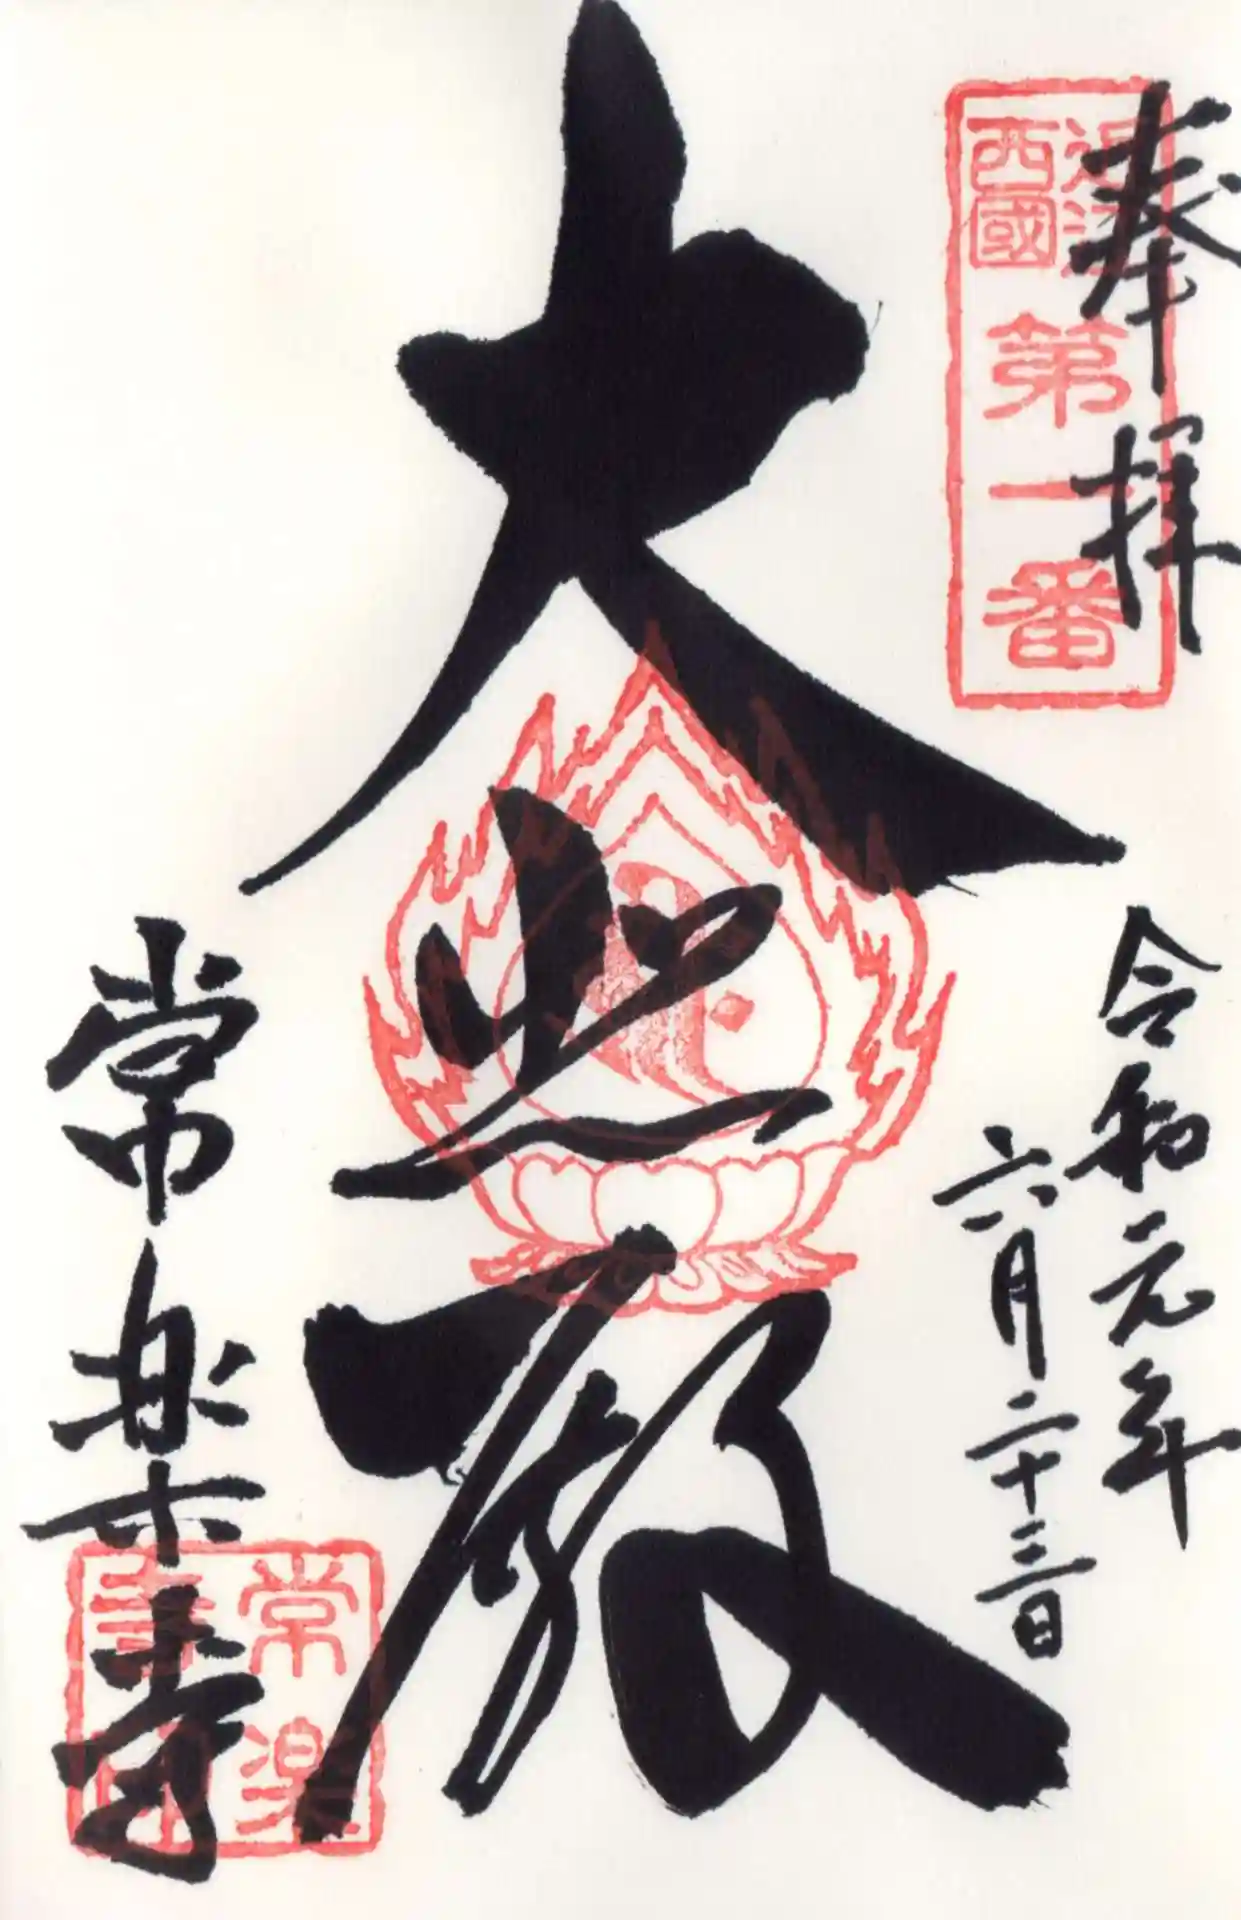 奉拝
近江
西國
第一番
令和元年
六月二十三日
大悲殿
常楽寺
常楽
寺印